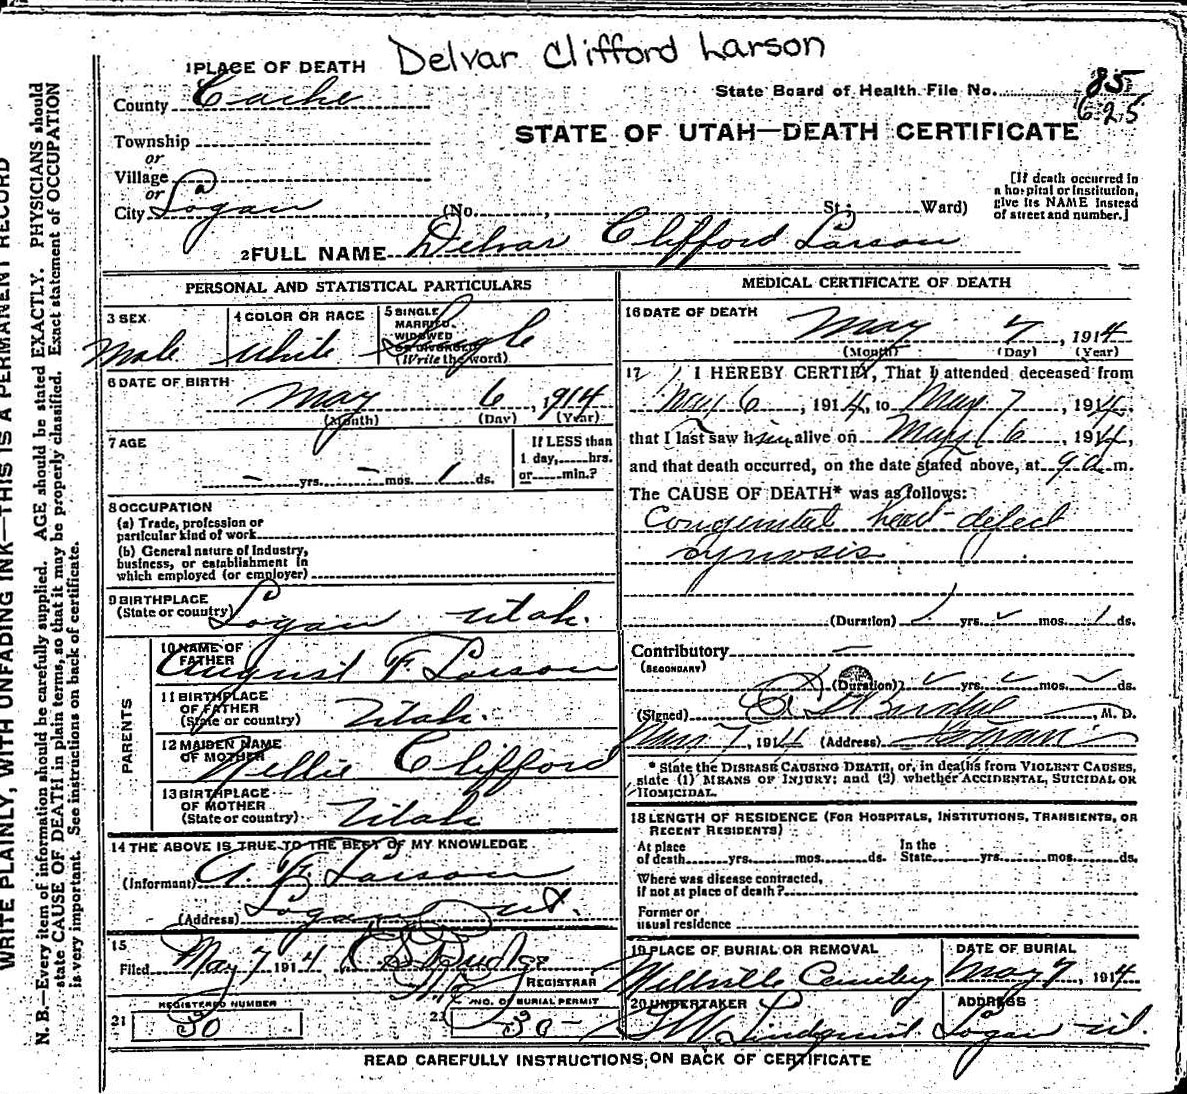 Delvar Clifford Larson
1 PLACE OF DEATH
County Cache
State Board of Health File No. 85
625
Township
or
Village
or
City Logan (No. , St.; Ward)
STATE OF UTAH—DEATH CERTIFICATE
[If death occurred in
a hospital or institution,
give its NAME instead
of street and number.]
2 FULL NAME Delvar Clifford Larson
PERSONAL AND STATISTICAL PARTICULARS
3 SEX
Male
4 COLOR OR RACE
White
5 SINGLE
MARRIED,
WIDOWED
OR DIVORCED
(Write the word)
Single
6 DATE OF BIRTH
May 6, 1914
(Month) (Day) (Year)
7 AGE
- yrs. - mos. 1 ds.
If LESS than
1 day, hrs.
or min.?
8 OCCUPATION
(a) Trade, profession or
particular kind of work
(b) General nature of Industry,
business, or establishment in
which employed (or employer)
9 BIRTHPLACE
(State or country) Logan Utah.
PARENTS
10 NAME OF
FATHER
August F Larson
11 BIRTHPLACE
OF FATHER
(State or country) Utah.
12 MAIDEN NAME
OF MOTHER
Nellie Clifford
13 BIRTHPLACE
OF MOTHER
(State or country) Utah
14 THE ABOVE IS TRUE TO THE BEST OF MY KNOWLEDGE
(Informant) A. F. Larson
(Address) Logan Ut.
15
Filed May 7 1914
REGISTRAR
REGISTERED NUMBER
21 30
NO. OF BURIAL PERMIT
22 30-
MEDICAL CERTIFICATE OF DEATH
16 DATE OF DEATH
May 7, 1914
(Month) (Day) (Year)
17 I HEREBY CERTIFY, That I attended deceased from
May 6, 1914, to May 7, 1914,
that I last saw him alive on May 6, 1914,
and that death occurred, on the date stated above, at 9 a m.
The CAUSE OF DEATH* was as follows:
Congenital heart defect
(Duration) yrs. mos. 1 ds.
Contributory -
(SECONDARY)
(Duration) yrs. mos. ds.
(Signed) , M. D.
7, 1914 (Address) Logan
* State the DISEASE CAUSING DEATH, or, in deaths from VIOLENT CAUSES,
state (1) MEANS OF INJURY; and (2) whether ACCIDENTAL, SUICIDAL OR
HOMICIDAL.
18 LENGTH OF RESIDENCE (FOR HOSPITALS, INSTITUTIONS, TRANSIENTS, OR
RECENT RESIDENTS)
At place
of death yrs. mos. ds.
In the
State yrs. mos. ds.
Where was disease contracted,
if not at place of death?
Former or
usual residence
19 PLACE OF BURIAL OR REMOVAL
Millville Cemetery
DATE OF BURIAL
May 7, 1914
20 UNDERTAKER
Lindquist
ADDRESS
Logan Ut.
READ CAREFULLY INSTRUCTIONS ON BACK OF CERTIFICATE
WRITE PLAINLY, WITH UNFADING INK—THIS IS A PERMANENT RECORD
N. B.—Every item of information should be carefully supplied. AGE should be stated EXACTLY. PHYSICIANS should
state CAUSE OF DEATH in plain terms, so that it may be properly classified. Exact statement of OCCUPATION
is very important. See instructions on back of certificate.